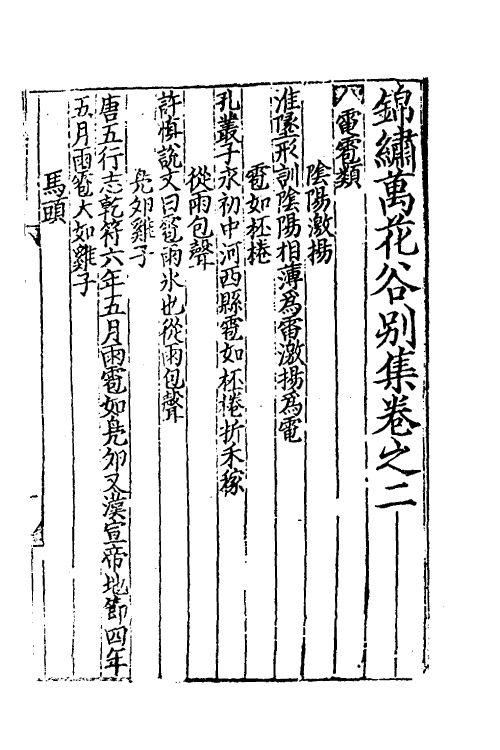 錦繡萬花谷别集卷之二
電雹類
陰陽激揚
淮墬形訓陰陽相薄爲雷激揚爲電
雹如杯棬
孔叢子永初中河西縣雹如杯棬折禾稼
從雨包聲
許慎說文曰雹雨氷也從雨包聲
鳧夘雞子
唐五行志乾符六年五月雨雹如鳧夘又漢宣帝地節四年
五月雨雹大如雞子
馬頭